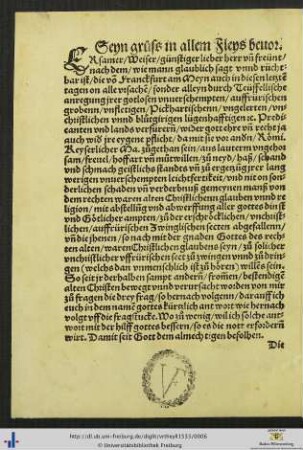 Eeyn grůß in allem Fleyß beuor.
ERsamer/Weiser/günstiger lieber herr vñ freünt/
nach dem/wie mann glaublich sagt vnnd rücht-
bar ist/die võ Franckfurt am Meyn auch in diesen letztẽ
tagen on alle vrsachẽ/sonder alleyn durch Teüffelische
anregung jrer gotlosen vnuerschempten/auffrürischen
grobenn/vnfletigen/Pickhartischenn/vngelerten/vn-
christlichen vnnd blůtgirigen lügenhafftigen ꝛc. Predi-
canten vnd lands verfürern/wider gott ehre vñ recht ja
auch wid jre eygene pflicht/damit sie vor andñ/Römi.
Keyserlicher Ma. zůgethan sein/aus lauterm vngehor
sam/freuel/hoffart vñ můtwillen/zů neyd/haß/schand
vnd schmach geistlichs standes vñ zů ergerũg jrer lang
werigen vnuerschempten leichtfertikeit/vnd nit on son-
derlichen schaden vñ verderbnuß gemeynen manß von
dem rechten waren alten Christlichenn glauben vnnd re
ligion/mit abstellũg vnd abwerffung aller gottes dinst
vnd Götlicher ampten/zů der erschröcklichen/vnchrist-
lichen/auffrürischen Zwinglischen secten abgefallenn/
vñ die jhenen/so nach mit der gnaden Gottes des rech-
ten alten/waren Christlichen glaubens seyn/zů solicher
vnchristlicher vffrürischen sect zů zwingen vnnd zů drin-
gen/welchs dan vnmenschlich ist zů hören) willẽs sein.
So seit jr derhalben sampt andern/from̃en/bestendigẽ
alten Christen bewegt vnnd verursacht worden von mir
zů fragen die drey frag/so hernach volgenn/darauff ich
euch in dem namẽ gottes kürtzlich antwort wie hernach
volgt vff die fragstucke. Wo zů wenig/wil ich solche ant-
wort mit der hilff gottes bessern/so es die nott erfordern
wirt. Damit seit Gott dem almechtigen befolhen.
Die
http://dl.ub.uni-freiburg.de/diglit/vrtheyl1533/0006
© Universitätsbibliothek Freiburg